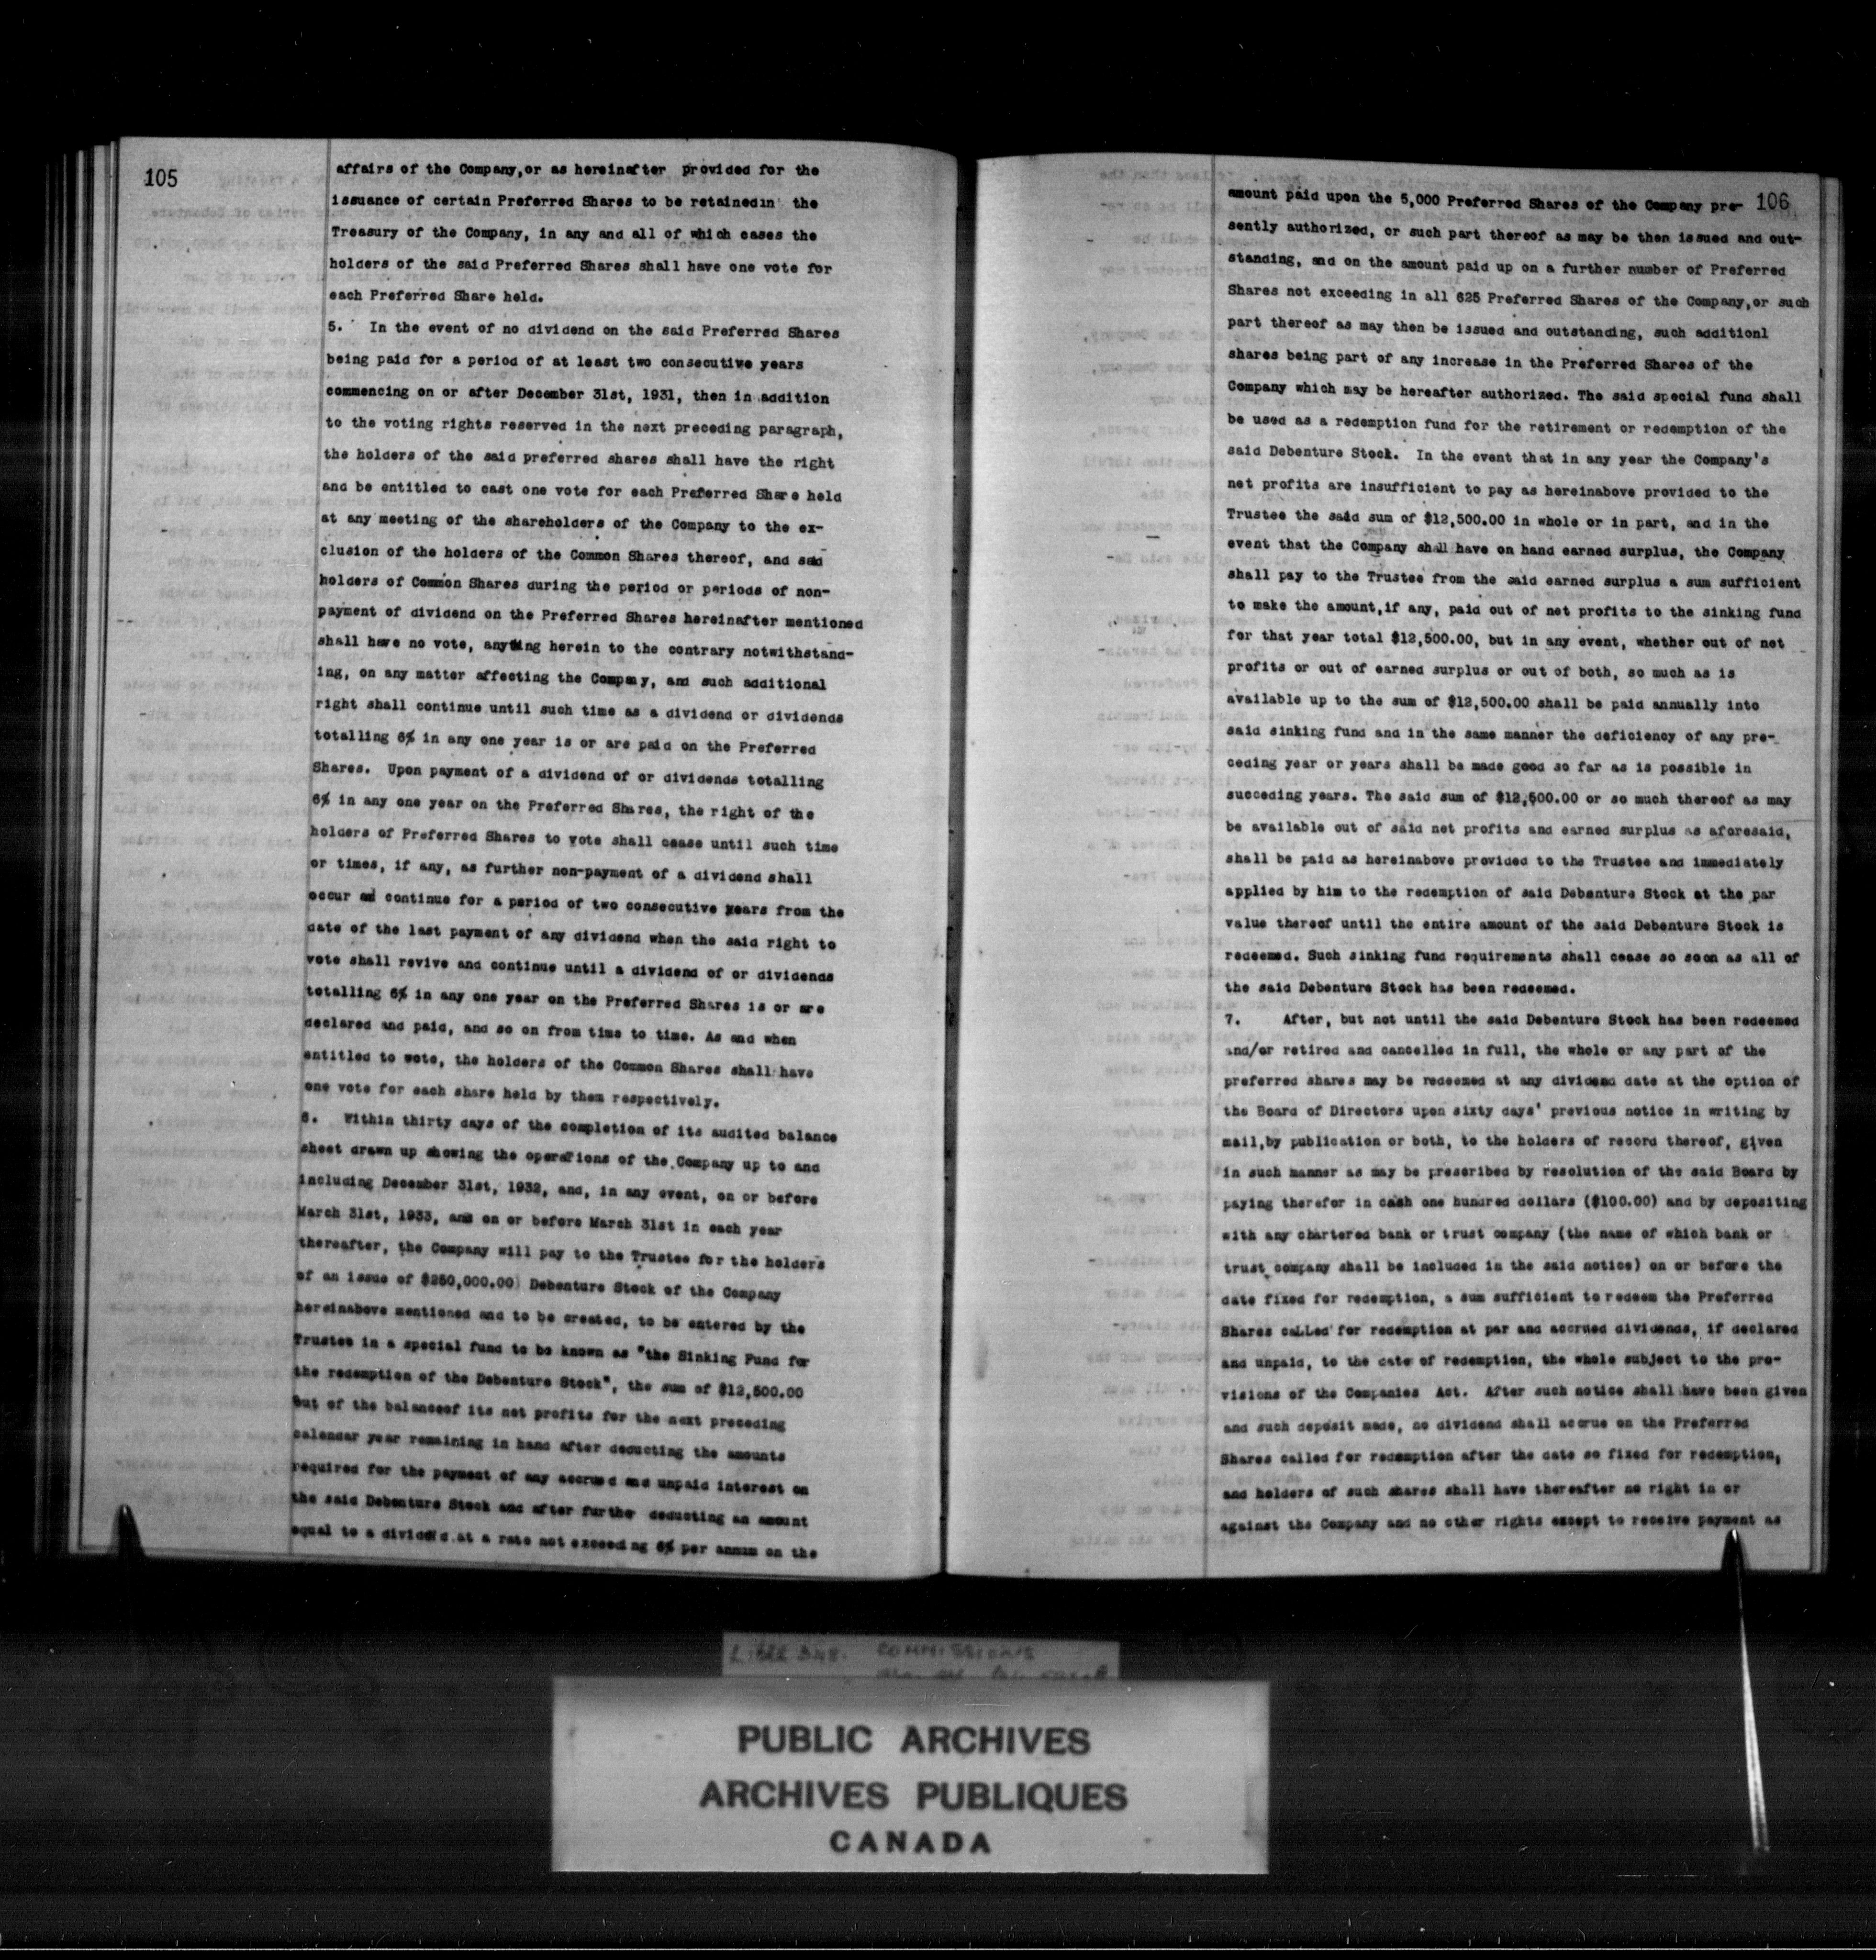 105
affairs of the Company,or as hereinafter provided for the
issuance of certain Preferred Shares to be retainedin the
Treasury of the Company, in any and all of which cases the
holders of the said Preferred Shares shall have one vote for
each Preferred Share held.
5. In the event of no dividend on the said Preferred Shares
being paid for a period of at least two consecutive years
commencing on or after December 31st, 1931, then in addition
to the voting rights reserved in the next preceding paragraph,
the holders of the said preferred shares shall have the right
and be entitled to cast one vote for each Preferred Share held
at any meeting of the shareholders of the Company to the ex-
clusion of the holders of the Common Shares thereof, and said
holders of Common Shares during the period or periods of non-
payment of dividend on the Preferred Shares hereinafter mentioned
shall have no vote, anything herein to the contrary notwithstand-
ing, on any matter affecting the Company, and such additional
right shall continue until such time as a dividend or dividends
totalling 6% in any one year is or are paid on the Preferred
Shares. Upon payment of a dividend of or dividends totalling
6% in any one year on the Preferred Shares, the right of the
holders of Preferred Shares to vote shall cease until such time
or times, if any, as further non-payment of a dividend shall
occur and continue for a period of two consecutive years from the
date of the last payment of any dividend when the said right to
vote shall revive and continue until a dividend of or dividends
totalling 6% in any one year on the Preferred Shares is or are
declared and paid, and so on from time to time. As and when
entitled to vote, the holders of the Common Shares shall have
one vote for each share held by them respectively.
6. Within thirty days of the completion of its audited balance
sheet drawn up showing the operations of the Company up to and
including December 31st, 1932, and, in any event, on or before
March 31st, 1933, and on or before March 31st in each year
thereafter, the Company will pay to the Trustee for the holders
of an issue of $250,000.00 Debenture Stock of the Company
hereinabove mentioned and to be created, to be entered by the
Trustee in a special fund to be known as "the Sinking Fund for
the redemption of the Debenture Stock", the sum of $12,500.00
out of the balanceof its net profits for the next preceding
calendar year remaining in hand after deducting the amounts
required for the payment of any accrued and unpaid interest on
the said Debenture Stock and after further deducting an amount
equal to a dividend at a rate not exceeding 6% per annum on the
106
amount paid upon the 5,000 Preferred Shares of the Company pre-
sently authorized, or such part thereof as may be then issued and out-
standing, and on the amount paid up on a further number of Preferred
Shares not exceeding in all 625 Preferred Shares of the Company,or such
part thereof as may then be issued and outstanding, such additionl
shares being part of any increase in the Preferred Shares of the
Company which may be hereafter authorized. The said special fund shall
be used as a redemption fund for the retirement or redemption of the
said Debenture Stock. In the event that in any year the Company's
net profits are insufficient to pay as hereinabove provided to the
Trustee the said sum of $12,500.00 in whole or in part, and in the
event that the Company shall have on hand earned surplus, the Company
shall pay to the Trustee from the said earned surplus a sum sufficient
to make the amount,if any, paid out of net profits to the sinking fund
for that year total $12,500.00, but in any event, whether out of net
profits or out of earned surplus or out of both, so much as is
available up to the sum of $12,500.00 shall be paid annually into
said sinking fund and in the same manner the deficiency of any pre-
ceding year or years shall be made good so far as is possible in
succeding years. The said sum of $12,500.00 or so much thereof as may
be available out of said net profits and earned surplus as aforesaid,
shall be paid as hereinabove provided to the Trustee and immediately
applied by him to the redemption of said Debenture Stock at the par
value thereof until the entire amount of the said Debenture Stock is
redeemed. Such sinking fund requirements shall cease so soon as all of
the said Debenture Stock has been redeemed.
7. After, but not until the said Debenture Stock has been redeemed
and/or retired and cancelled in full, the whole or any part of the
preferred shares may be redeemed at any dividend date at the option of
the Board of Directors upon sixty days' previous notice in writing by
mail,by publication or both, to the holders of record thereof, given
in such manner as may be prescribed by resolution of the said Board by
paying therefor in cash one hundred dollars ($100.00) and by depositing
with any chartered bank or trust company (the name of which bank or
trust company shall be included in the said notice) on or before the
date fixed for redemption, a sum sufficient to redeem the Preferred
Shares called for redemption at par and accrued dividends, if declared
and unpaid, to the date of redemption, the whole subject to the pro-
visions of the Companies Act. After such notice shall have been given
and such deposit made, no dividend shall accrue on the Preferred
Shares called for redemption after the date so fixed for redemption,
and holders of such shares shall have thereafter no right in or
against the Company and no other rights except to receive payment as
LIBER 348. COMMISSIONS
PUBLIC ARCHIVES
ARCHIVES PUBLIQUES
CANADA